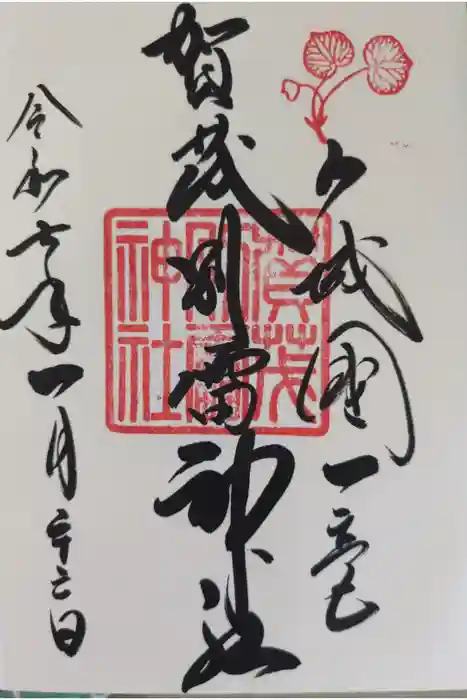 山城國一宮
賀茂別雷神社
賀茂別雷神社
令和七年一月二十二日